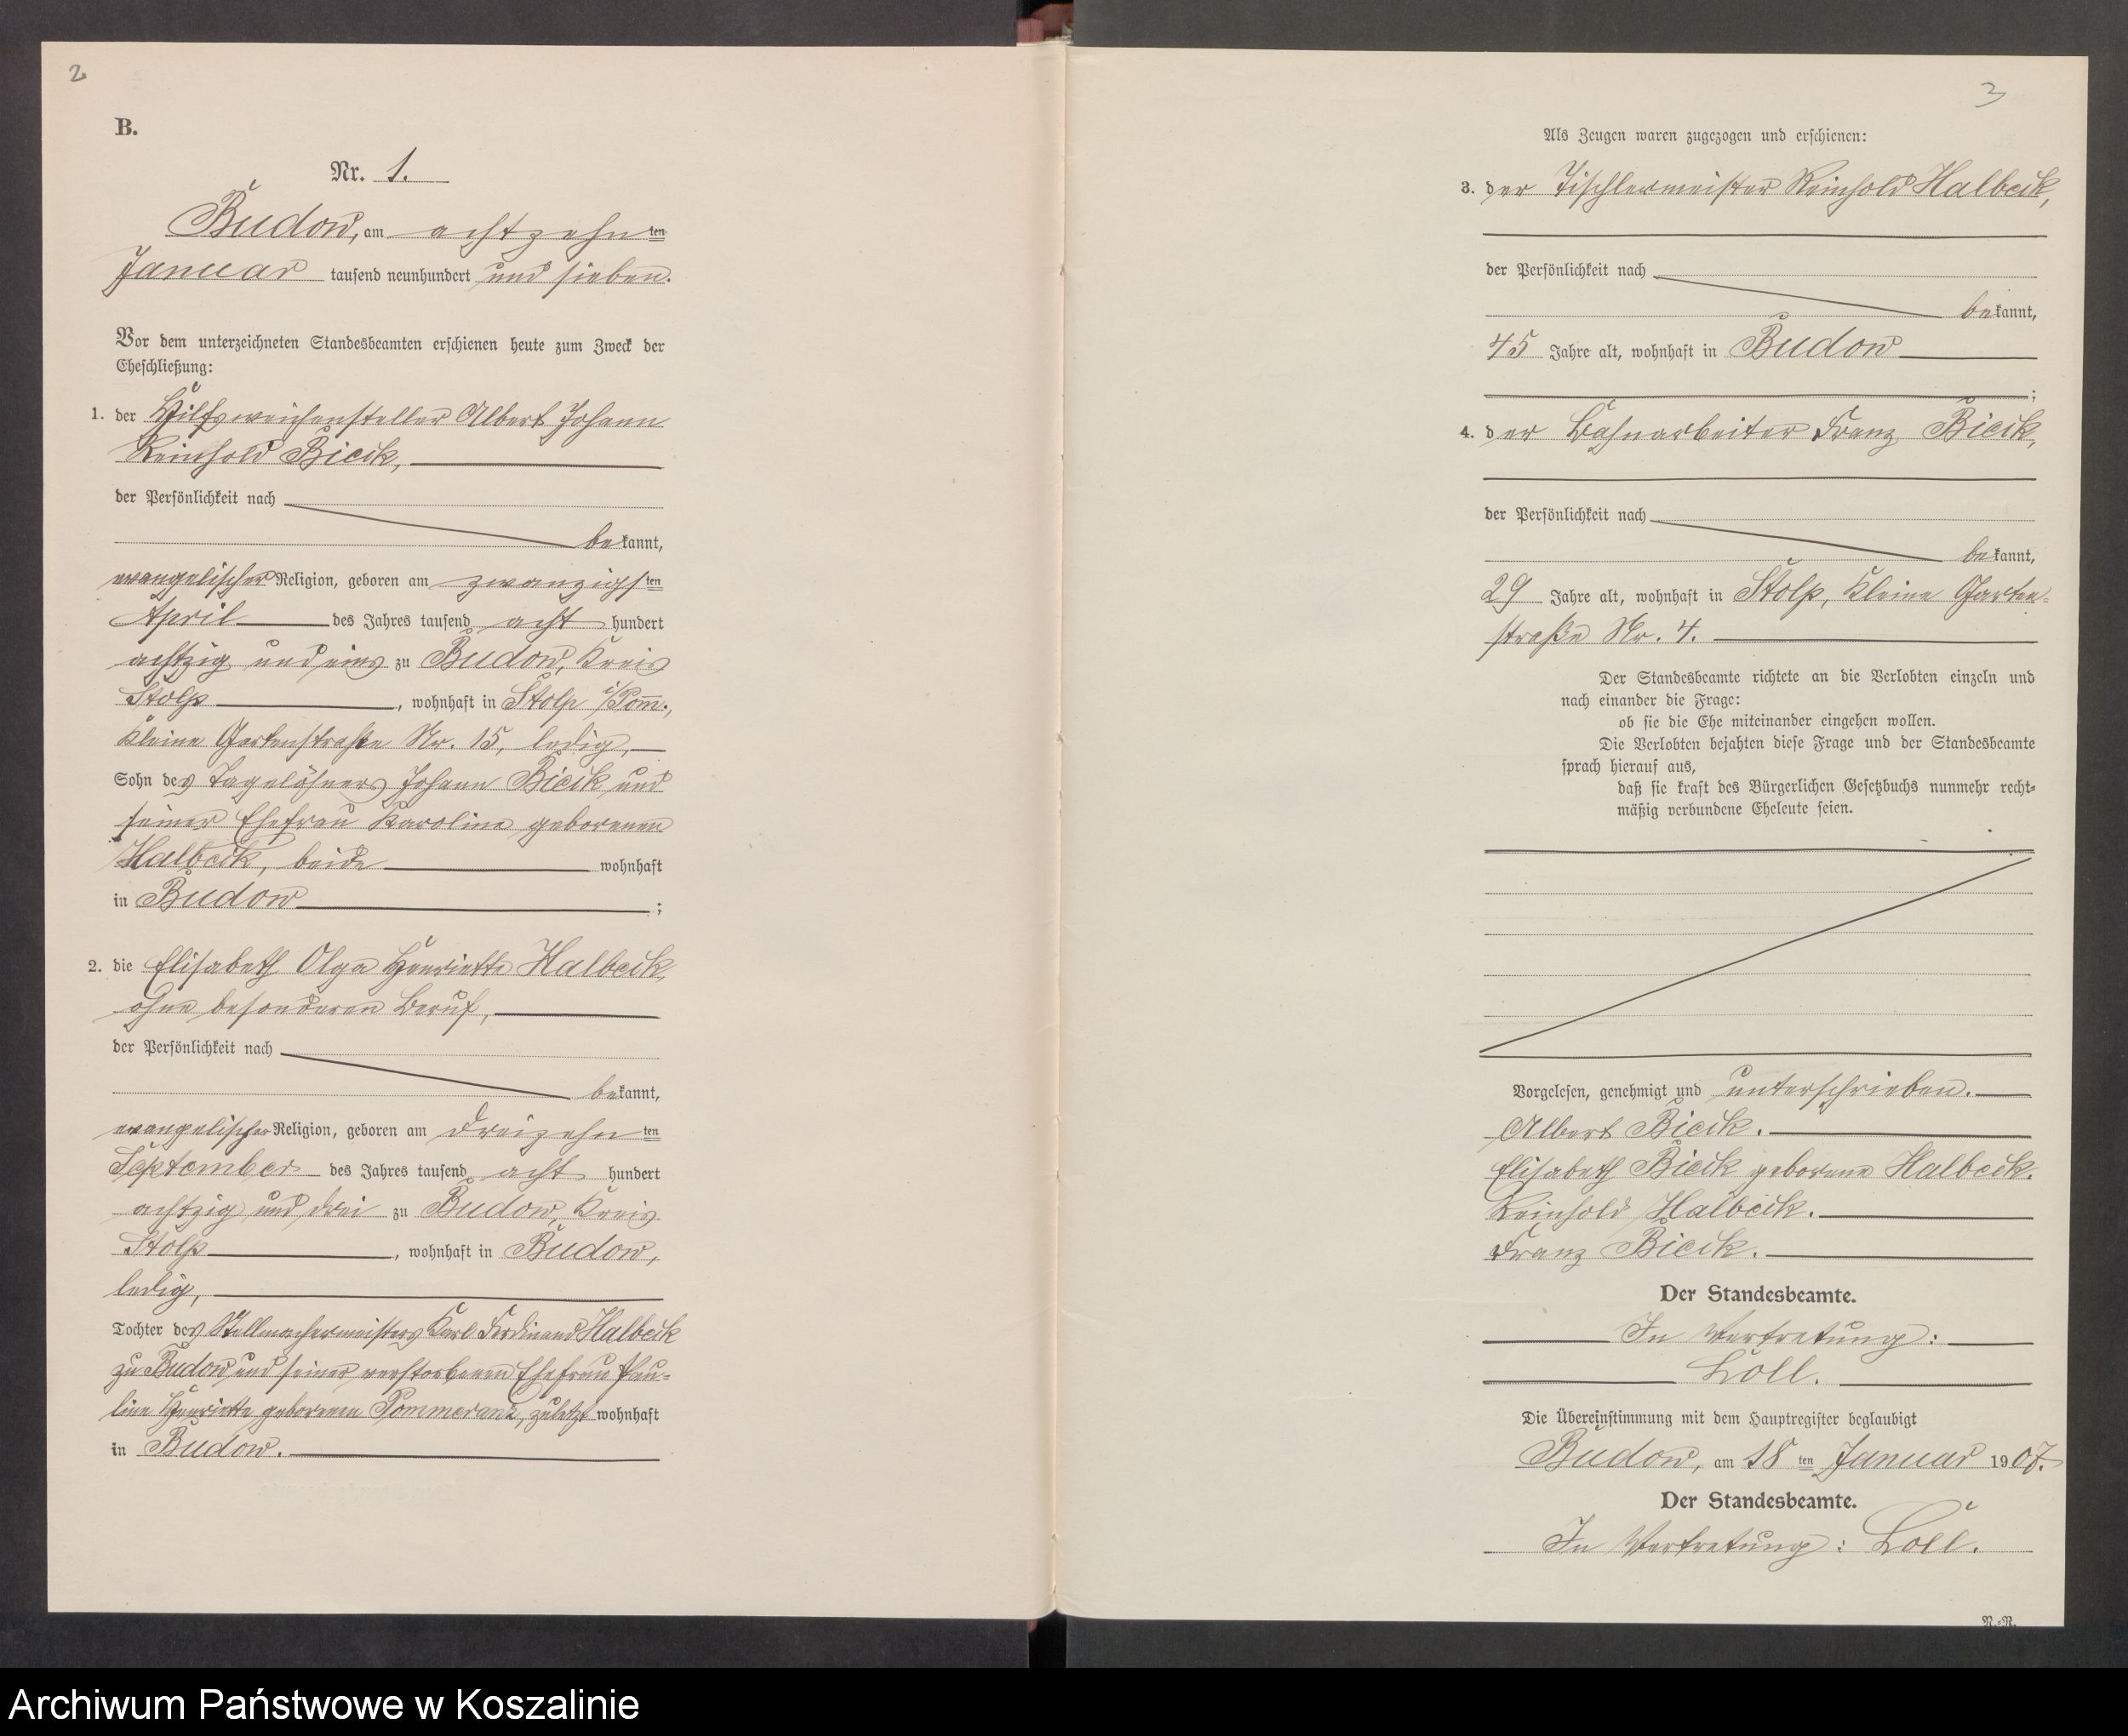 2
B.
Nr. 1.
Budow, am achtzehnten
Januar tausend neunhundert und sieben.
Vor dem unterzeichneten Standesbeamten erschienen heute zum Zweck der
Eheschließung:
1. der Hilfsweichensteller Albert Johann
Reinhold Bicik,
der Persönlichkeit nach
bekannt,
evangelischer Religion, geboren am zwanzigsten
April des Jahres tausend acht hundert
achtzig und eins zu Budow, Kreis
Stolp, wohnhaft in Stolp i/Pom̅.,
Kleine Gartenstraße Nr. 15, ledig,
Sohn des Tagelöhners Johann Bicik und
seiner Ehefrau Karoline geborenen
Halbcik, beide wohnhaft
in Budow;
2. die Elisabeth Olga Henriette Halbcik,
ohne besonderen Beruf,
der Persönlichkeit nach
bekannt,
evangelischer Religion, geboren am dreizehnten
September des Jahres tausend acht hundert
achtzig und drei zu Budow, Kreis
Stolp, wohnhaft in Budow,
ledig,
Tochter des Stellmachermeisters Karl Ferdinand Halbcik
zu Budow und seiner verstorbenen Ehefrau Pau-
line Henriette geborenen Pommeranz, zuletzt wohnhaft
in Budow.
3
Als Zeugen waren zugezogen und erschienen:
3. der Tischlermeister Reinhold Halbcik,
der Persönlichkeit nach
bekannt,
45 Jahre alt, wohnhaft in Budow
;
4. der Bahnarbeiter Franz Bicik,
der Persönlichkeit nach
bekannt,
29 Jahre alt, wohnhaft in Stolp, Kleine Garten-
straße Nr. 4.
Der Standesbeamte richtete an die Verlobten einzeln und
nach einander die Frage:
ob sie die Ehe miteinander eingehen wollen.
Die Verlobten bejahten diese Frage und der Standesbeamte
sprach hierauf aus,
daß sie kraft des Bürgerlichen Gesetzbuchs nunmehr recht-
mäßig verbundene Eheleute seien.
Vorgelesen, genehmigt und unterschrieben.
Albert Bicik.
Elisabeth Bicik geborene Halbcik.
Reinhold Halbcik.
Franz Bicik.
Der Standesbeamte.
In Vertretung:
Loll.
Die Übereinstimmung mit dem Hauptregister beglaubigt
Budow, am 18ten Januar 1907.
Der Standesbeamte.
In Vertretung: Loll.
N.-N.
Archiwum Państwowe w Koszalinie